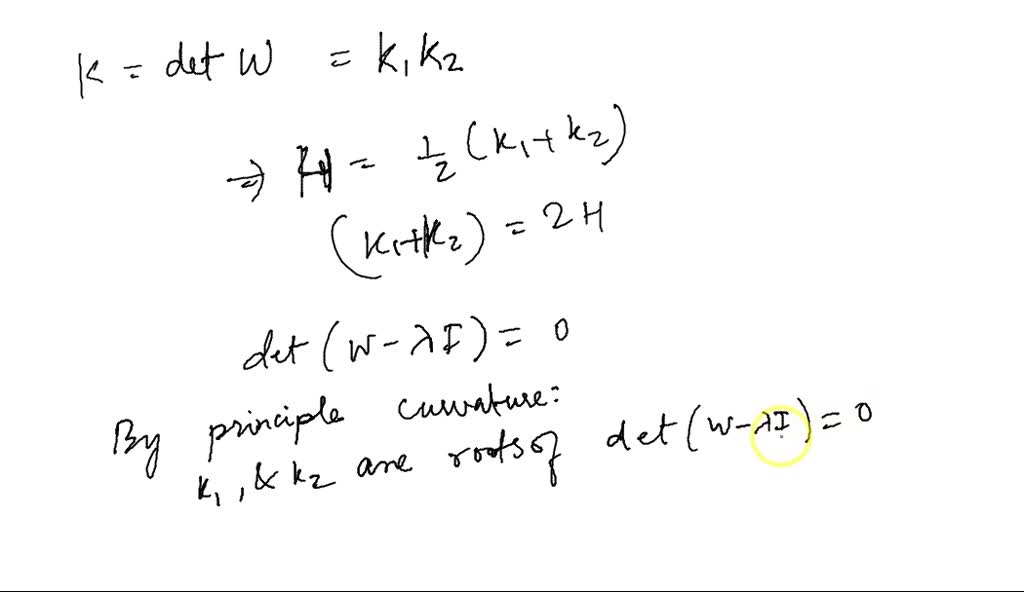 K = det W = k₁k₂
⇒ H = ½ (k₁ + k₂)
(k₁+k₂) = 2H
det (W - λI) = 0
By principle curvature:
k₁, & k₂ are roots of det (W - λI) = 0